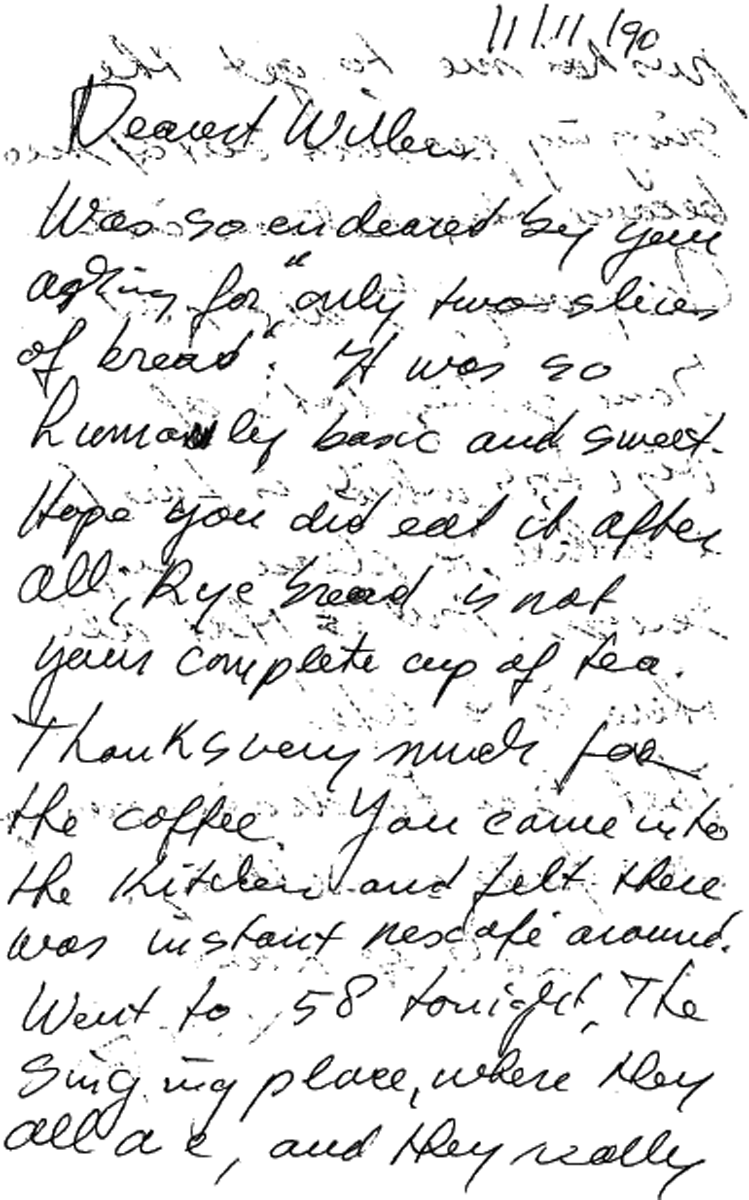 11/11/90
Dearest Willem
Was so endeared by your
asking for "only two slices
of bread". It was so
humanly basic and sweet.
Hope you did eat it after
all; Rye bread is not
your complete cup of tea.
Thanks very much for
the coffee. You came into
the kitchen and felt there
was instant nescafé around.
Went to 58 tonight, The
Singing place, where they
all a e, and they really